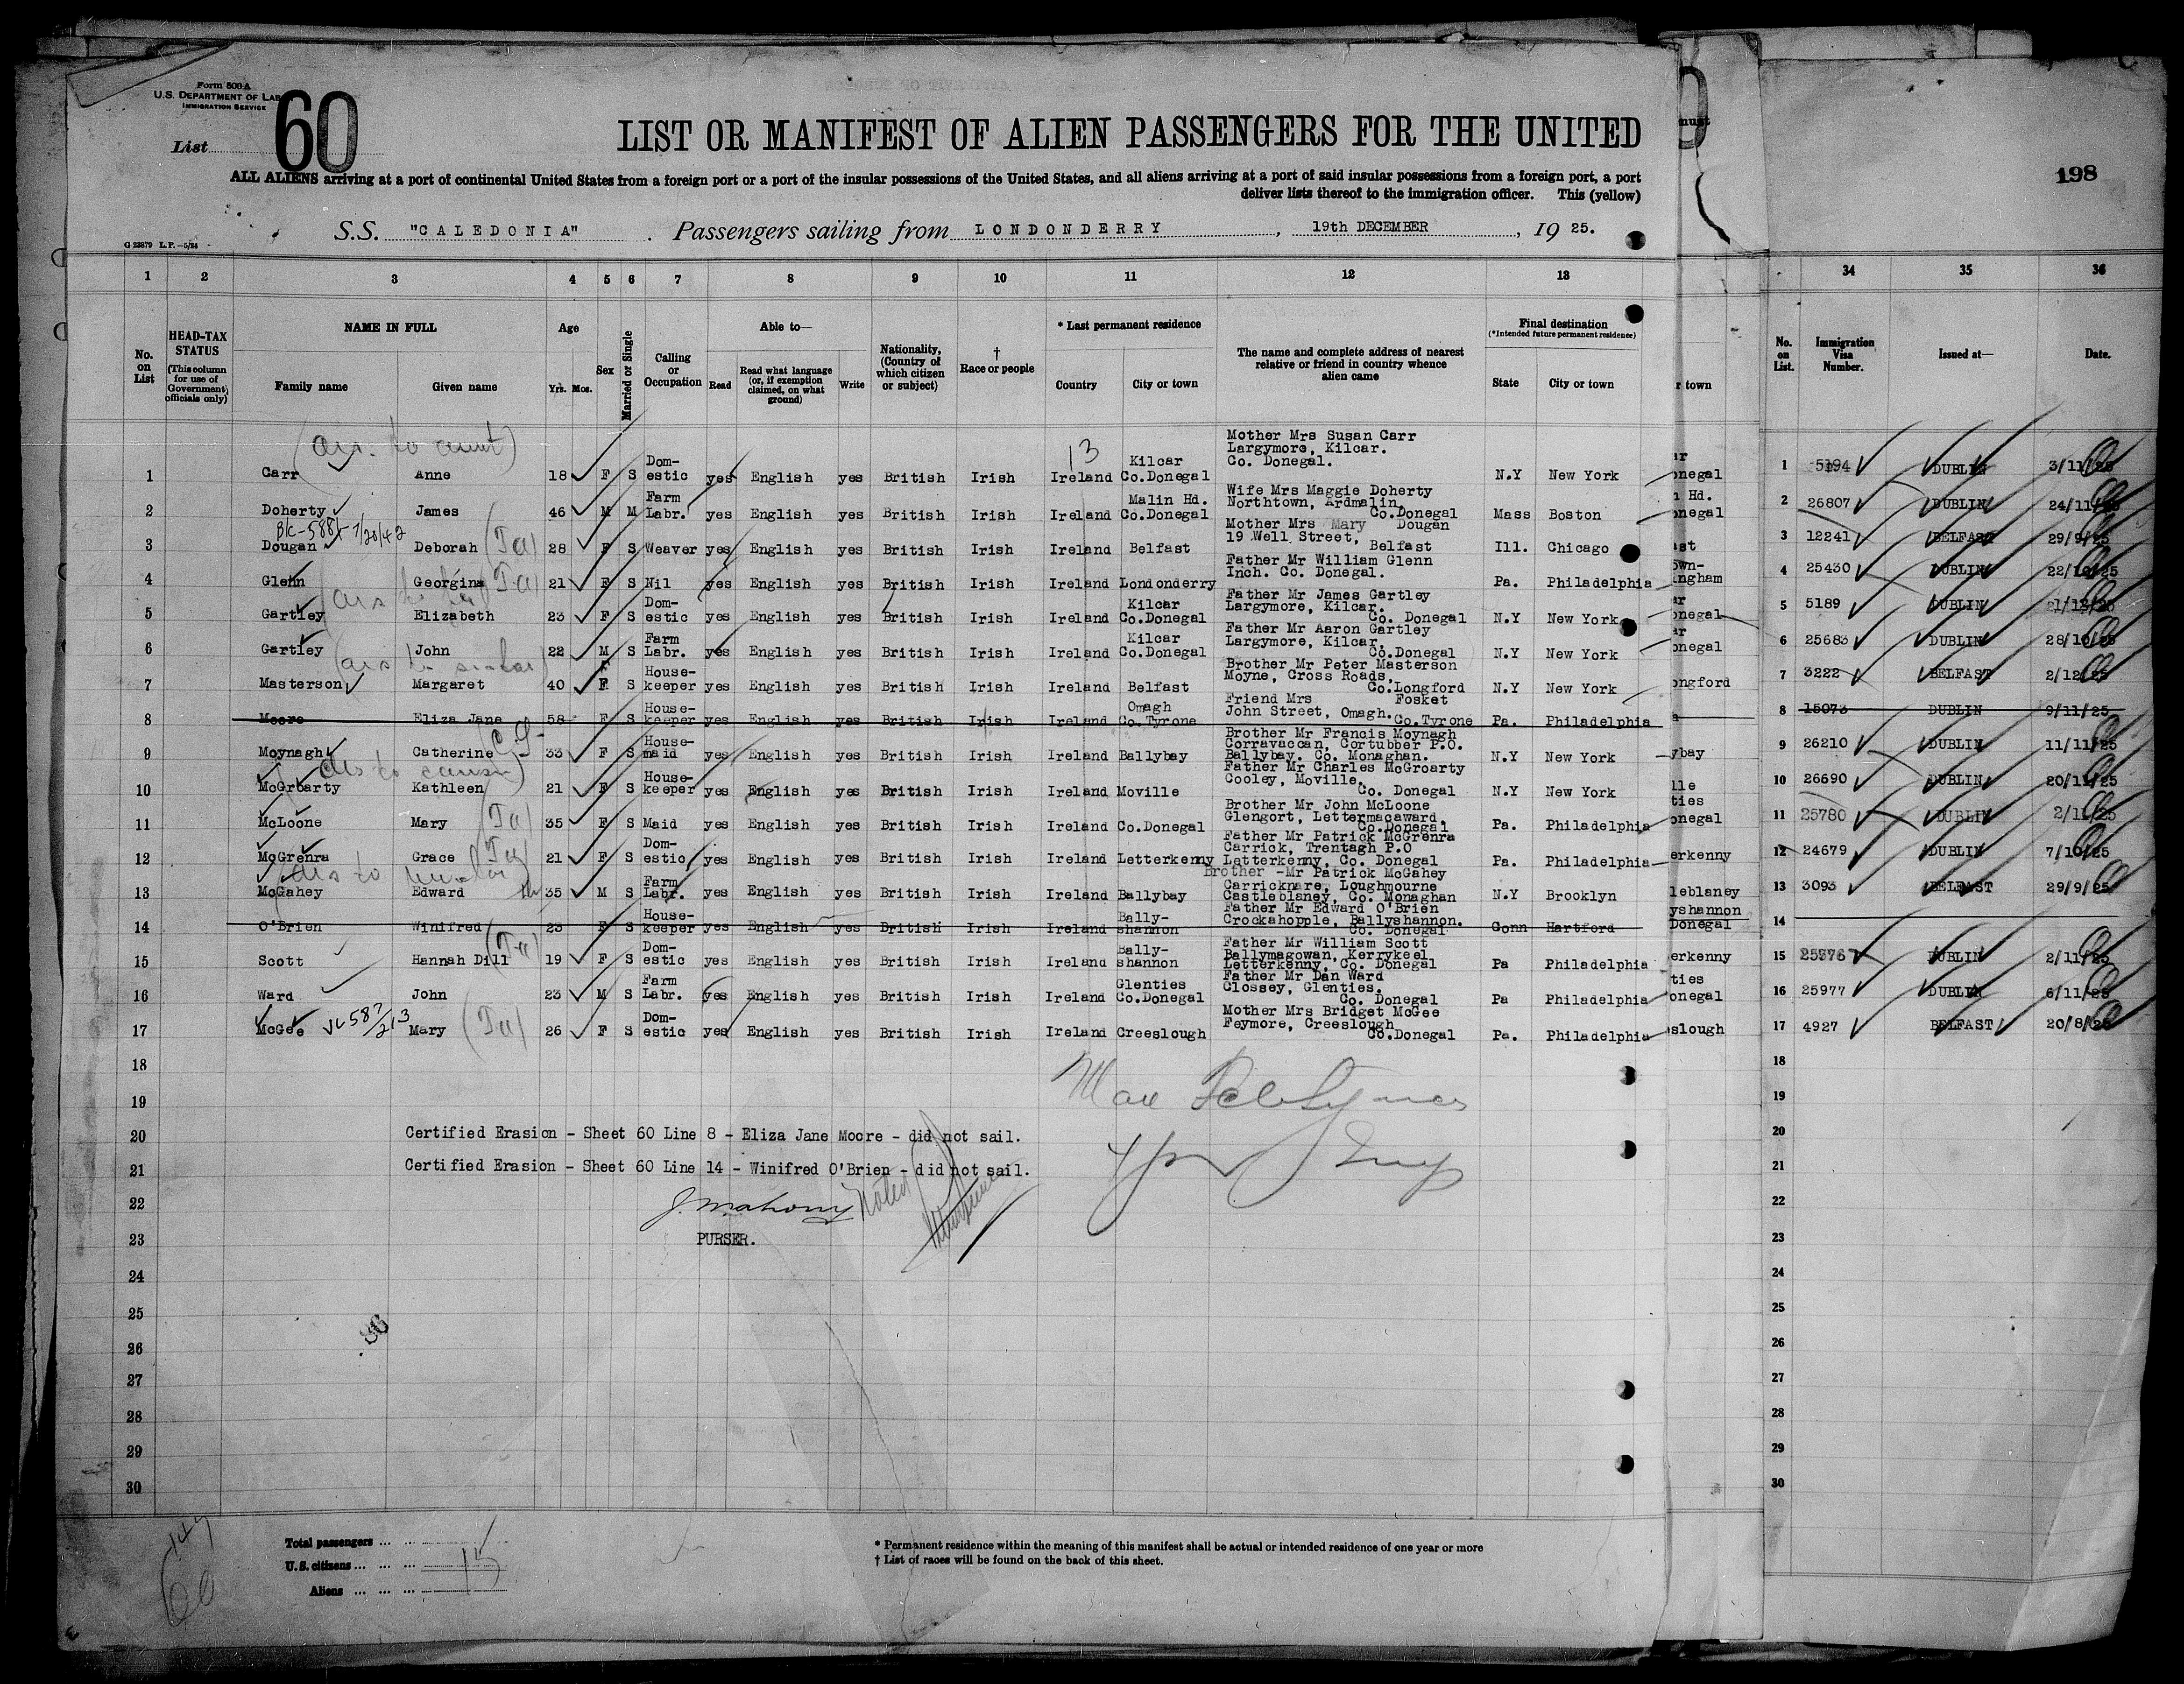 Form 500 A
U.S. DEPARTMENT OF LAB
IMMIGRATION SERVICE
List 60
LIST OR MANIFEST OF ALIEN PASSENGERS FOR THE UNITED
must
198
ALL ALIENS arriving at a port of continental United States from a foreign port or a port of the insular possessions of the United States, and all aliens arriving at a port of said insular possessions from a foreign port, a port
deliver lists thereof to the immigration officer. This (yellow)
G 23879 L.P.—5/24
S.S. "CALEDONIA" . Passengers sailing from LONDONDERRY , 19th DECEMBER , 19 25.
1 2 3 4 5 6 7 8 9 10 11 12 13 34 35 36
No. on List
HEAD-TAX STATUS (This column for use of Government officials only)
NAME IN FULL Family name Given name
Age Yrs. Mos.
Sex
Married or Single
Calling or Occupation
Able to— Read Read what language (or, if exemption claimed, on what ground) Write
Nationality, (Country of which citizen or subject)
† Race or people
* Last permanent residence Country City or town
The name and complete address of nearest relative or friend in country whence alien came
Final destination (*Intended future permanent residence) State City or town
r town
No. on List.
Immigration Visa Number.
Issued at—
Date.
(ars. to aunt)
13
1 Carr Anne 18 F S Dom-estic yes English yes British Irish Ireland Kilcar Co.Donegal Mother Mrs Susan Carr Largymore, Kilcar. Co. Donegal. N.Y New York ar onegal 1 5194 DUBLIN 3/11/25
2 Doherty James 46 M M Farm Labr. yes English yes British Irish Ireland Malin Hd. Co.Donegal Wife Mrs Maggie Doherty Northtown, Ardmalin, Co.Donegal Mass Boston n Hd. onegal 2 26807 DUBLIN 24/11/25
3 Dougan Deborah 28 F S Weaver yes English yes British Irish Ireland Belfast Mother Mrs Mary Dougan 19 Well Street, Belfast Ill. Chicago ast 3 12241 BELFAST 29/9/25
4 Glenn Georgina 21 F S Nil yes English yes British Irish Ireland Londonderry Father Mr William Glenn Inch. Co. Donegal. Pa. Philadelphia own- ingham 4 25430 DUBLIN 22/10/25
5 Gartley Elizabeth 23 F S Dom-estic yes English yes British Irish Ireland Kilcar Co.Donegal Father Mr James Gartley Largymore, Kilcar. Co. Donegal N.Y New York ar onegal 5 5189 DUBLIN
6 Gartley John 22 M S Farm Labr. yes English yes British Irish Ireland Kilcar Co.Donegal Father Mr Aaron Gartley Largymore, Kilcar, Co.Donegal N.Y New York ar onegal 6 25683 DUBLIN 28/10/25
7 Masterson Margaret 40 F S House-keeper yes English yes British Irish Ireland Belfast Brother Mr Peter Masterson Moyne, Cross Roads, Co.Longford N.Y New York ongford 7 3222 BELFAST 2/12/25
8 Moore Eliza Jane 58 F S House-keeper yes English yes British Irish Ireland Omagh Co.Tyrone Friend Mrs Fosket John Street, Omagh. Co.Tyrone Pa. Philadelphia a 8 15073 DUBLIN 9/11/25
9 Moynagh Catherine 33 F S House-maid yes English yes British Irish Ireland Ballybay Brother Mr Francis Moynagh Corravaccan, Cortubber P.O. Ballybay. Co. Monaghan. N.Y New York ybay 9 26210 DUBLIN 11/11/25
10 McGroarty Kathleen 21 F S House-keeper yes English yes British Irish Ireland Moville Father Mr Charles McGroarty Cooley, Moville. Co. Donegal N.Y New York lle 10 26690 DUBLIN 20/11/25
11 McLoone Mary 35 F S Maid yes English yes British Irish Ireland Co.Donegal Brother Mr John McLoone Glengort, Lettermacaward, Co.Donegal Pa. Philadelphia ties onegal 11 25780 DUBLIN 2/11/25
12 McGrenra Grace 21 F S Dom-estic yes English yes British Irish Ireland Letterkenny Father Mr Patrick McGrenra Carrick, Trentagh P.O Letterkenny, Co. Donegal Pa. Philadelphia erkenny 12 24679 DUBLIN 7/10/25
13 McGahey Edward 35 M S Farm Labr. yes English yes British Irish Ireland Ballybay Brother -Mr Patrick McGahey Carricknare, Loughmourne Castleblaney, Co. Monaghan N.Y Brooklyn leblaney 13 3093 BELFAST 29/9/25
14 O'Brien Winifred 23 F S House-keeper yes English yes British Irish Ireland Bally-shannon Father Mr Edward O'Brien Crockahopple, Ballyshannon. Co. Donegal Conn Hartford yshannon Donegal 14
15 Scott Hannah Dill 19 F S Dom-estic yes English yes British Irish Ireland Bally-shannon Father Mr William Scott Ballymagowan, Kerrykeel Letterkenny, Co. Donegal Pa Philadelphia erkenny 15 25776 DUBLIN 2/11/25
16 Ward John 23 M S Farm Labr. yes English yes British Irish Ireland Glenties Co.Donegal Father Mr Dan Ward Clossey, Glenties. Co. Donegal Pa Philadelphia ties onegal 16 25977 DUBLIN 6/11/25
17 McGee Mary 26 F S Dom-estic yes English yes British Irish Ireland Creeslough Mother Mrs Bridget McGee Feymore, Creeslough Co.Donegal Pa. Philadelphia slough 17 4927 BELFAST 20/8/25
18 18
19 19
20 Certified Erasion - Sheet 60 Line 8 - Eliza Jane Moore - did not sail. 20
21 Certified Erasion - Sheet 60 Line 14 - Winifred O'Brien - did not sail. 21
22 J. Mahony Noted 22
23 PURSER. 23
24 24
25 25
26 26
27 27
28 28
29 29
30 30
Total passengers
U.S. citizens 15
Aliens
60
* Permanent residence within the meaning of this manifest shall be actual or intended residence of one year or more
† List of races will be found on the back of this sheet.